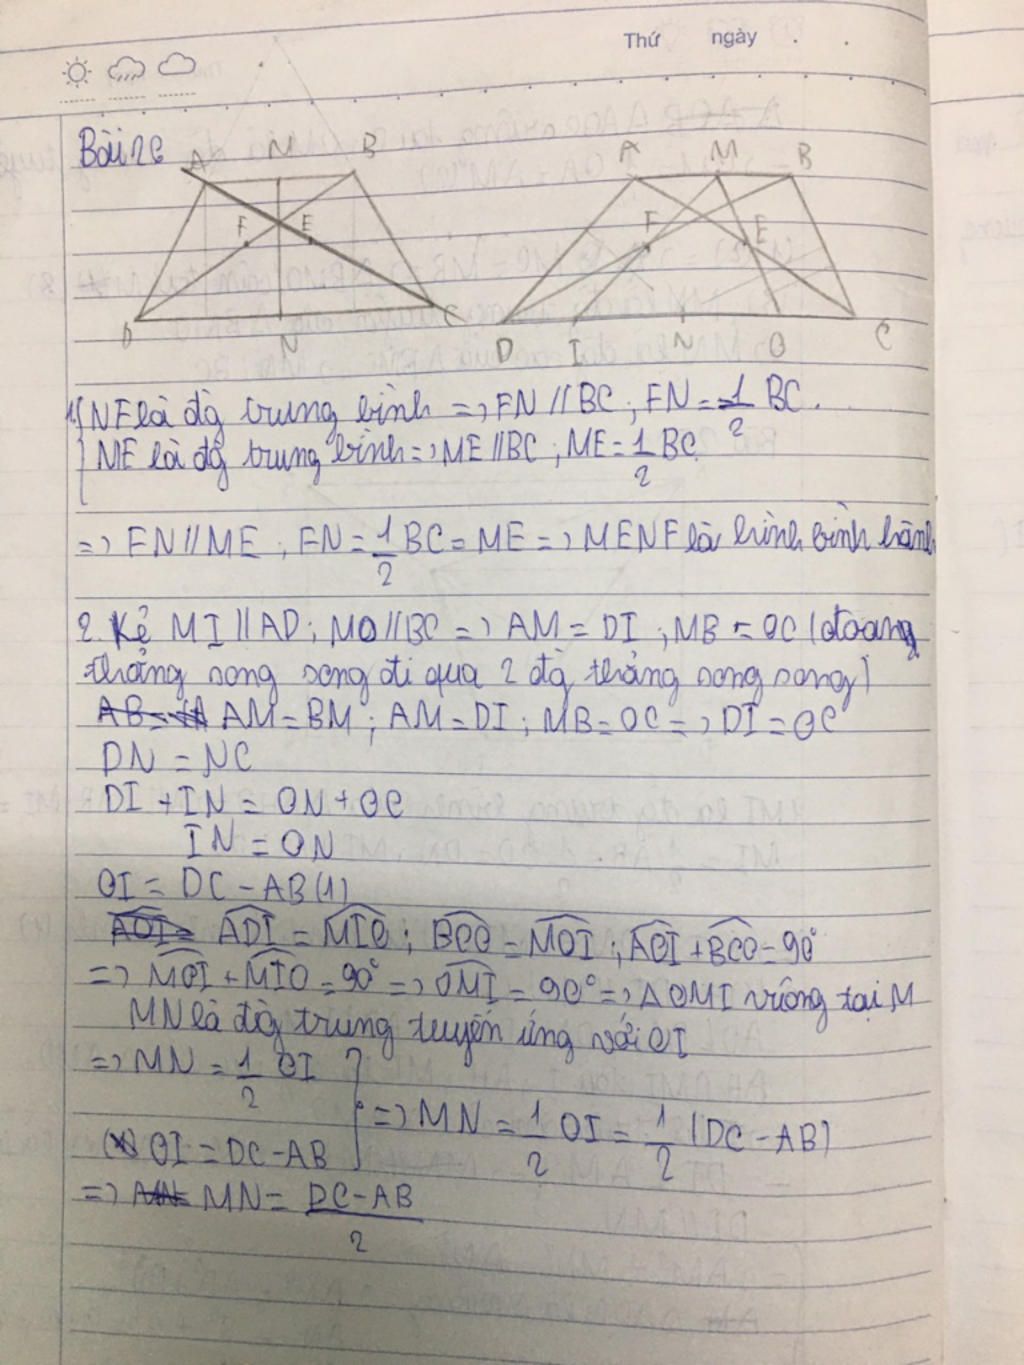 Thứ ngày
Bài 26
A M B
A M B
F E
F E
D N C
D I N O C
1. NF là đg trung bình => FN // BC ; FN = 1/2 BC.
ME là đg trung bình => ME // BC ; ME = 1/2 BC
=> FN // ME ; FN = 1/2 BC = ME => MENF là hình bình hành
2. Kẻ MI // AD ; MO // BC => AM = DI ; MB = OC (đoạng
thẳng song song đi qua 2 đg thẳng song song)
AM = BM ; AM = DI ; MB = OC => DI = OC
DN = NC
DI + IN = ON + OC
IN = ON
OI = DC - AB (1)
ADI = MIO ; BCO = MOI ; ADI + BCO = 90°
=> MOI + MIO = 90° => OMI = 90° => Δ OMI vuông tại M
MN là đg trung tuyến ứng với OI
=> MN = 1/2 OI
=> MN = 1/2 OI = 1/2 (DC - AB)
OI = DC - AB
=> MN = DC - AB / 2